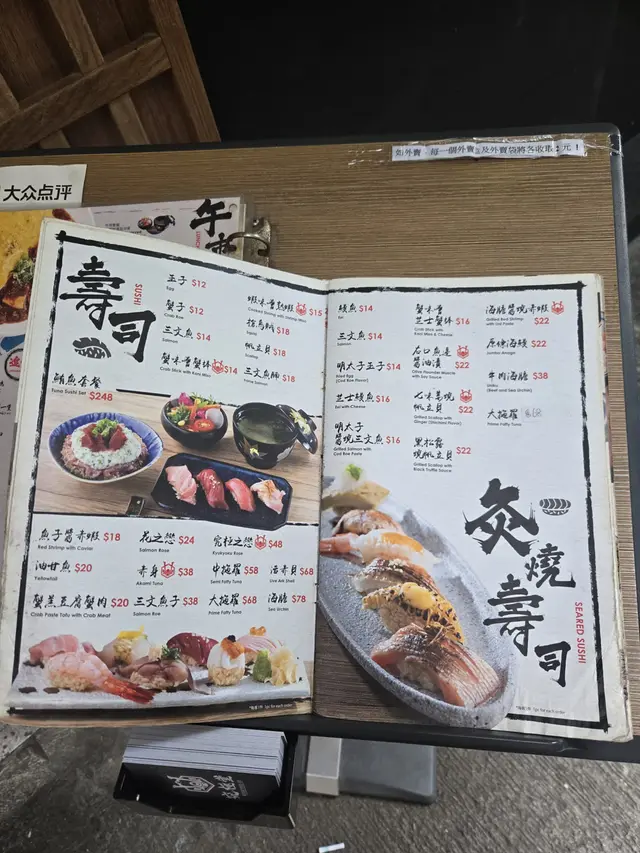 如外賣，每一個外賣盒及外賣袋將各收取2元！
大众点评
午市
LUNCH
壽司
SUSHI
玉子 $12
Egg
蟹子 $12
Crab Roe
三文魚 $14
Salmon
蟹味噌蟹柳 $14
Crab Stick with Kani Miso
蝦味噌熟蝦 $15
Cooked Shrimp with Shrimp Miso
墨烏賊 $18
帆立貝 $18
Scallop
三文魚腩 $18
Prime Salmon
鮪魚套餐
Tuna Sushi Set $248
魚子醬赤蝦 $18
Red Shrimp with Caviar
花之戀 $24
Salmon Rose
究極之戀 $48
Kyukyoku Rose
油甘魚 $20
Yellowtail
赤身 $38
Akami Tuna
中拖羅 $58
Semi Fatty Tuna
活赤貝 $68
Live Ark Shell
蟹羔豆腐蟹肉 $20
Crab Paste Tofu with Crab Meat
三文魚子 $38
Salmon Roe
大拖羅 $68
Prime Fatty Tuna
海膽 $78
Sea Urchin
鰻魚 $14
Eel
三文魚 $14
Salmon
明太子玉子 $14
Fried Egg
(Cod Roe Flavor)
芝士鰻魚 $16
Eel with Cheese
明太子
醬燒三文魚 $16
Grilled Salmon with
Cod Roe Paste
蟹味噌
芝士蟹柳 $16
Crab Stick with
Kani Miso & Cheese
左口魚邊
醬油漬 $22
Olive Flounder Muscle
with Soy Sauce
七味葛燒
帆立貝 $22
Grilled Scallop with
Ginger (Shichimi Flavor)
黑松露
燒帆立貝 $22
Grilled Scallop with
Black Truffle Sauce
海膽醬燒赤蝦
Grilled Red Shrimp
with Uni Paste $22
原條海鰻 $22
Jumbo Anago
牛肉海膽 $38
(Beef and Sea Urchin)
大拖羅 $68
Prime Fatty Tuna
炙燒壽司
SEARED SUSHI